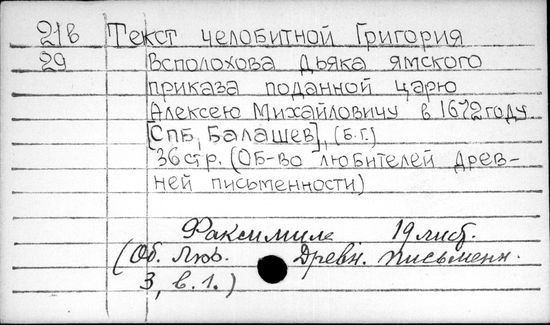 21в Текст челобитной Григория
29 Всполохова дьяка ямского
приказа поданной царю
Алексею Михайловичу в 1672 году.
[СПб, Балашев], (б.г.)
36 стр. (Об-во любителей древ-
ней письменности)
Факсимиле 19 лист.
(Об. Люб. Древн. письменн.
3, в. 1.)